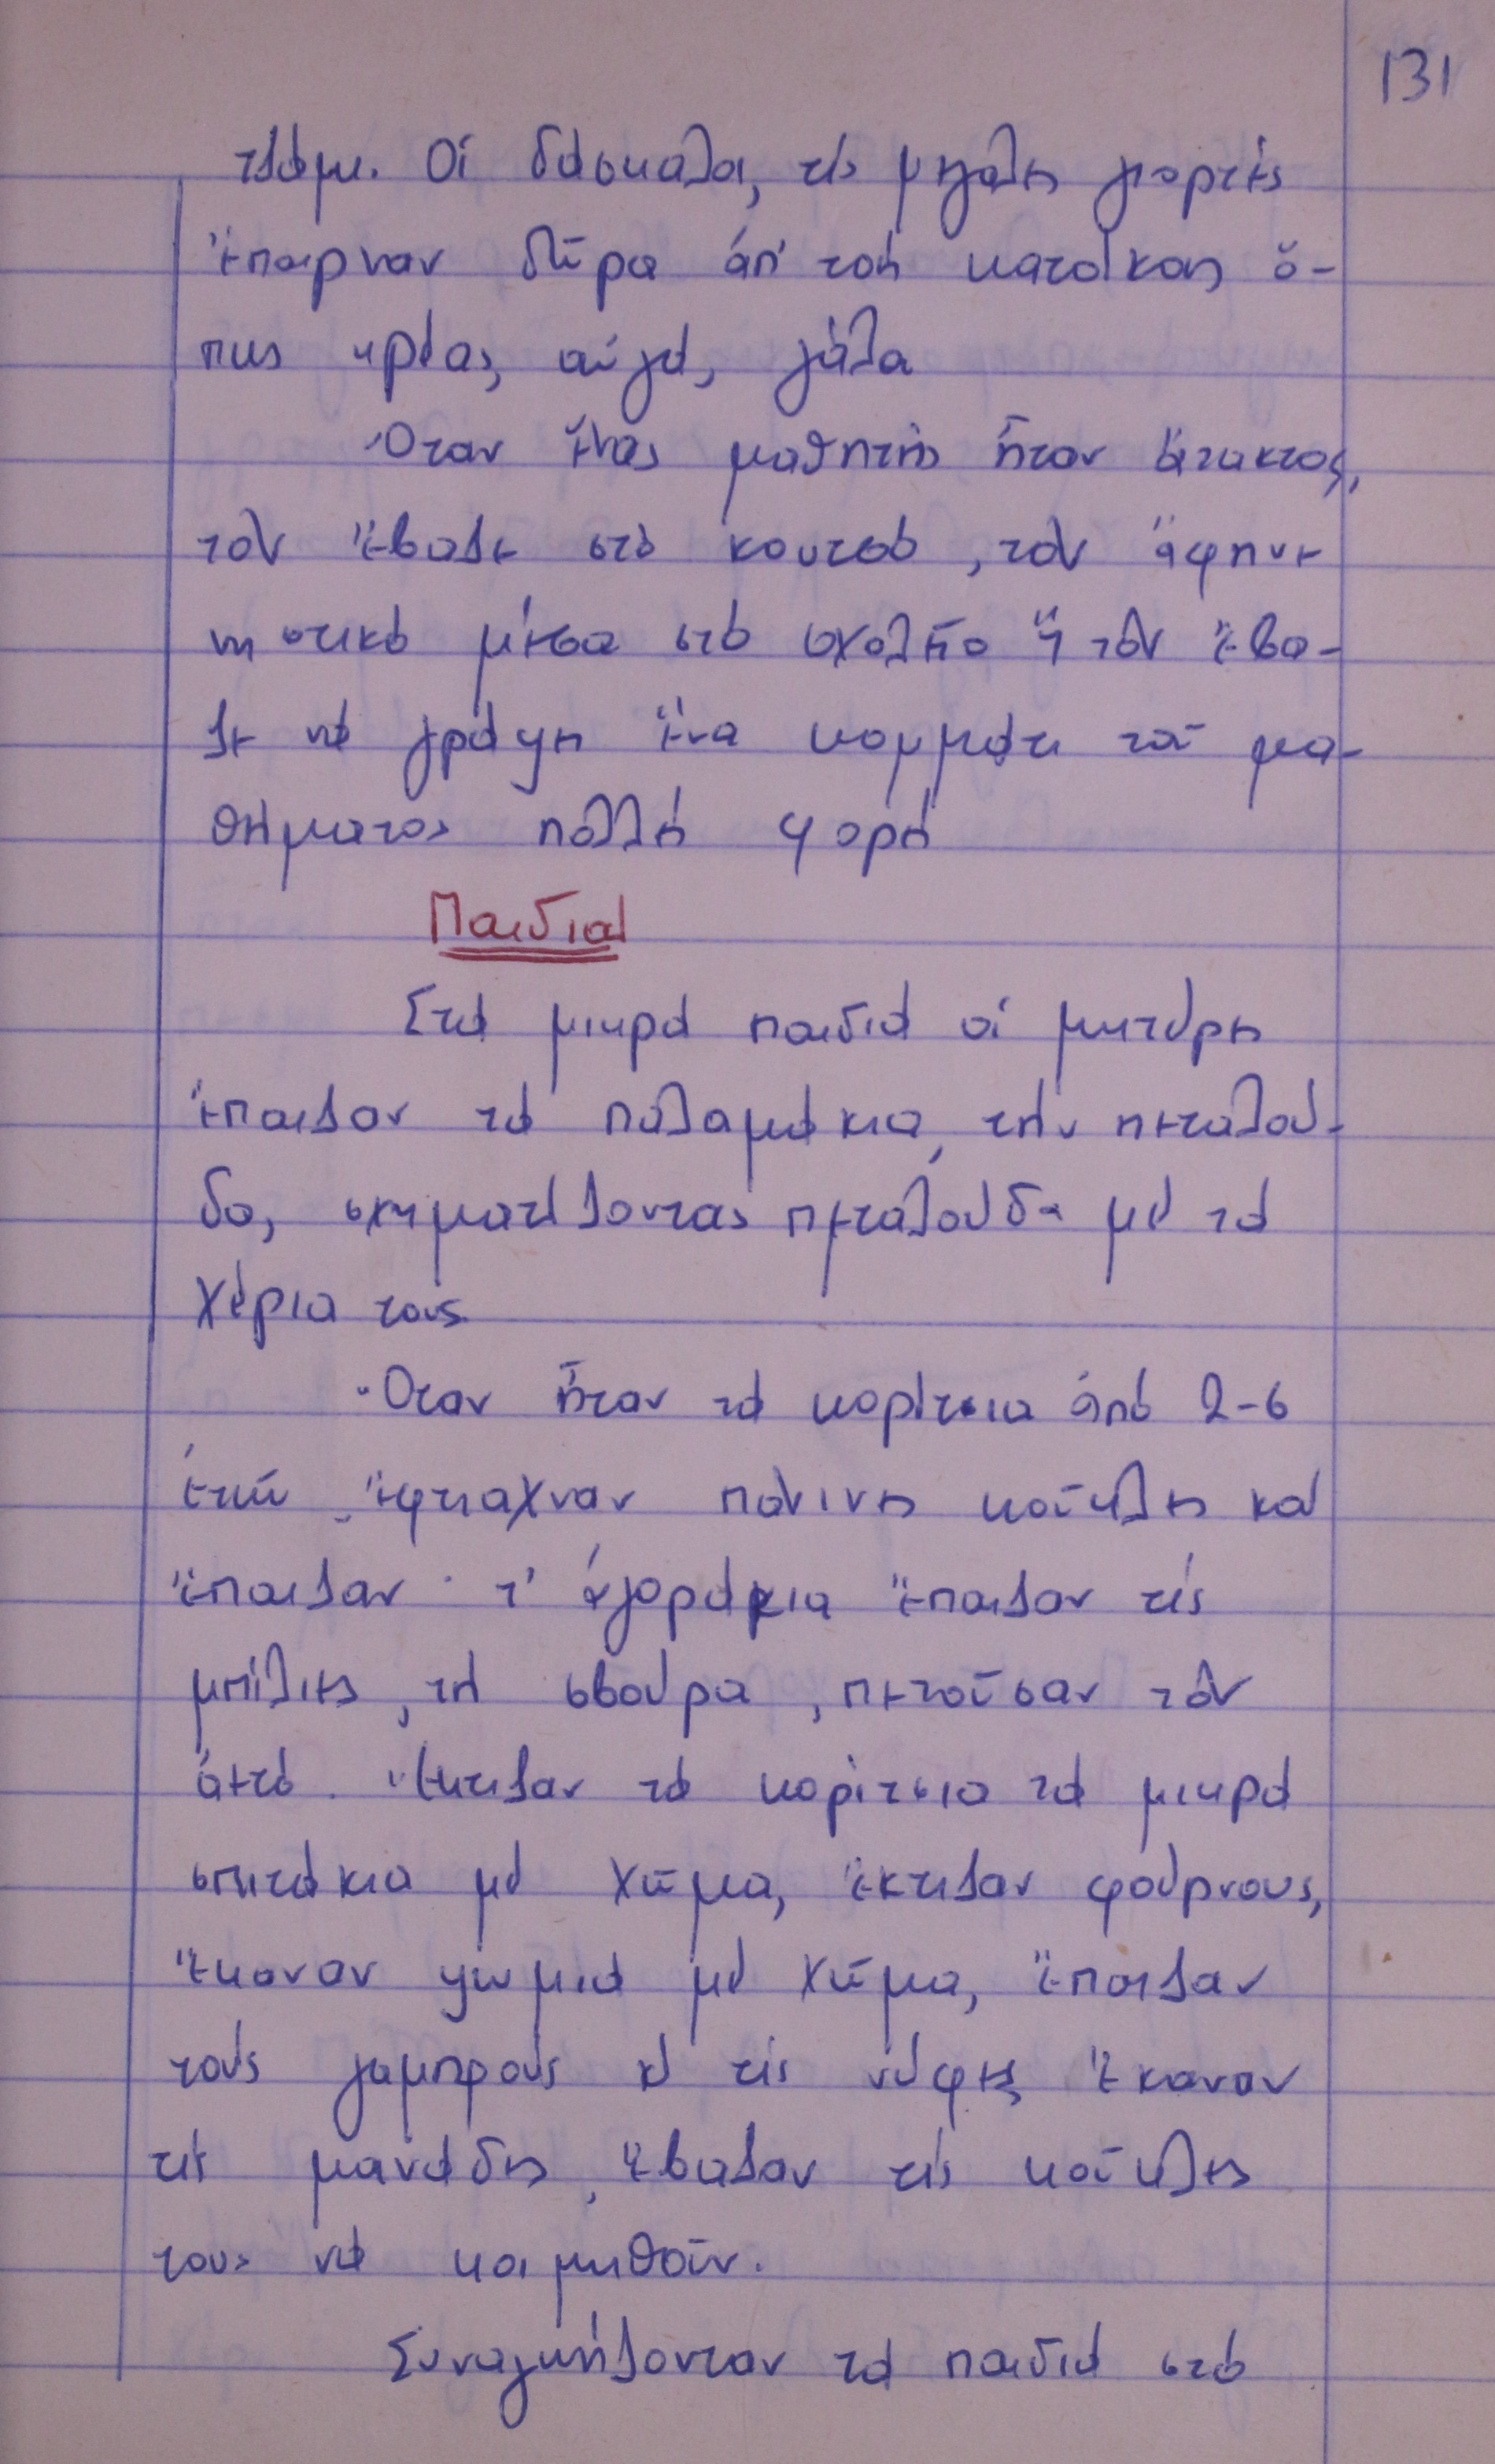 131
τζάμι. Οἱ δάσκαλοι, τίς μεγάλες γιορτές
ἔπαιρναν δῶρα ἀπ' τούς κατοίκους ὅ-
πως κρέας, αὐγά, γάλα
Ὅταν ἕνας μαθητής ἦταν ἄτακτος,
τόν ἔβαζε στό κουτσό, τόν ἄφηνε
νηστικό μέσα στό σχολεῖο ἤ τόν ἔβα-
ζε νά γράψει ἕνα κομμάτι τοῦ μα-
θήματος πολλές φορές
Παιδιά
Στά μικρά παιδιά οἱ μητέρες
ἔπαιζαν τά παλαμάκια, τήν πεταλού-
δα, σχηματίζοντας πεταλούδα μέ τά
χέρια τους.
Ὅταν ἦταν τά κορίτσια ἀπό 2-6
ἐτῶν, ἔφτιαχναν πάνινες κοῦκλες καί
ἔπαιζαν · τ' ἀγοράκια ἔπαιζαν τίς
μπίλιες, τή σβούρα, πετοῦσαν τόν
ἀετό. Ἔκτιζαν τά κορίτσια τά μικρά
σπιτάκια μέ χῶμα, ἔκτιζαν φούρνους,
ἔκαναν ψωμιά μέ χῶμα, ἔπαιζαν
τούς γαμπρούς κέ τίς νύφες ἔκαναν
τίς μανάδες, ἔβαζαν τίς κοῦκλες
τους νά κοιμηθοῦν.
Συναγωνίζονταν τά παιδιά στό